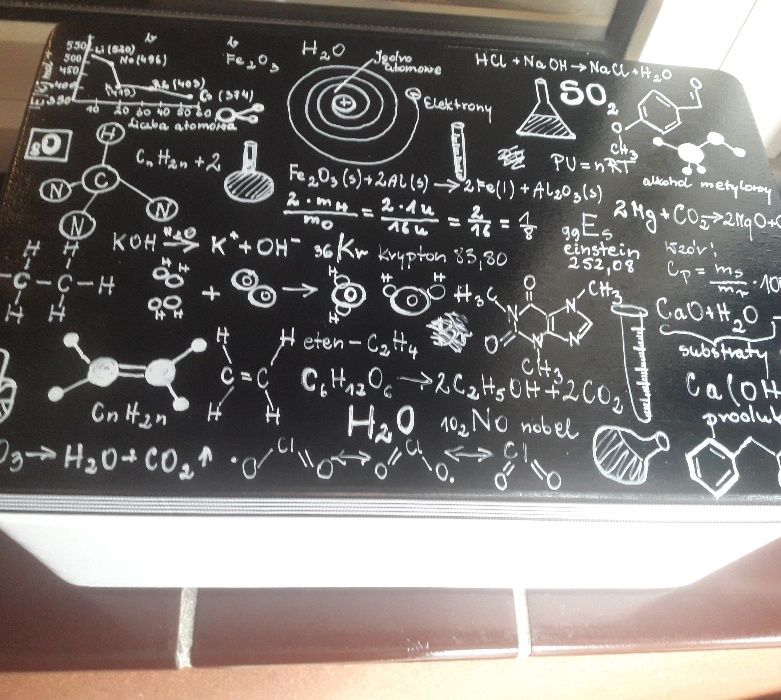 550 Li (520)
500 Na (496)
450
Rb (403)
350 Cs (374)
10 20 30 40 50 60
liczba atomowa
Fe₂O₃
H₂O
Jądro
atomowe
Elektrony
HCl + NaOH → NaCl + H₂O
SO₂
O
O
CH₃
PV = nRT
alkohol metylowy
₈O
H
C
N
N
N
CₙH₂ₙ + 2
Fe₂O₃(s) + 2Al(s) → 2Fe(l) + Al₂O₃(s)
2 · mH / mO = 2 · 1u / 16u = 2/16 = 1/8
₉₉Es
einstein
252,08
2Mg + CO₂ → 2MgO + C
KOH H₂O → K⁺ + OH⁻
₃₆Kr krypton 83,80
wzór:
Cp = ms / mr · 10
H H
– C – C – H
H H
H H
H H
+ →
H
H
H H
H₃C
O
CH₃
N
N
N
N
O
CH₃
CaO + H₂O
substraty
Ca(OH
produkt
CnH2n
H H
C = C
H H
eten – C₂H₄
C₆H₁₂O₆ → 2C₂H₅OH + 2CO₂
H₂O
₁₀₂No nobel
O₃ → H₂O + CO₂ ↑
· O Cl O ↔ O Cl O · ↔ O Cl O